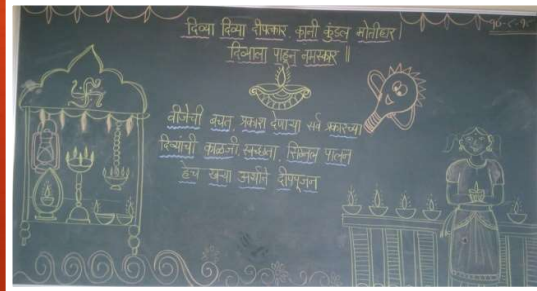 दिव्या दिव्या दीपत्कार, कानी कुंडल मोतीहार |
दिव्याला पाहून नमस्कार ||
वीजेची बचत, प्रकाश देणाऱ्या सर्व प्रकारच्या
दिव्यांची काळजी स्वच्छता, सिग्नल पालन
हेच खऱ्या अर्थाने दीपपूजन